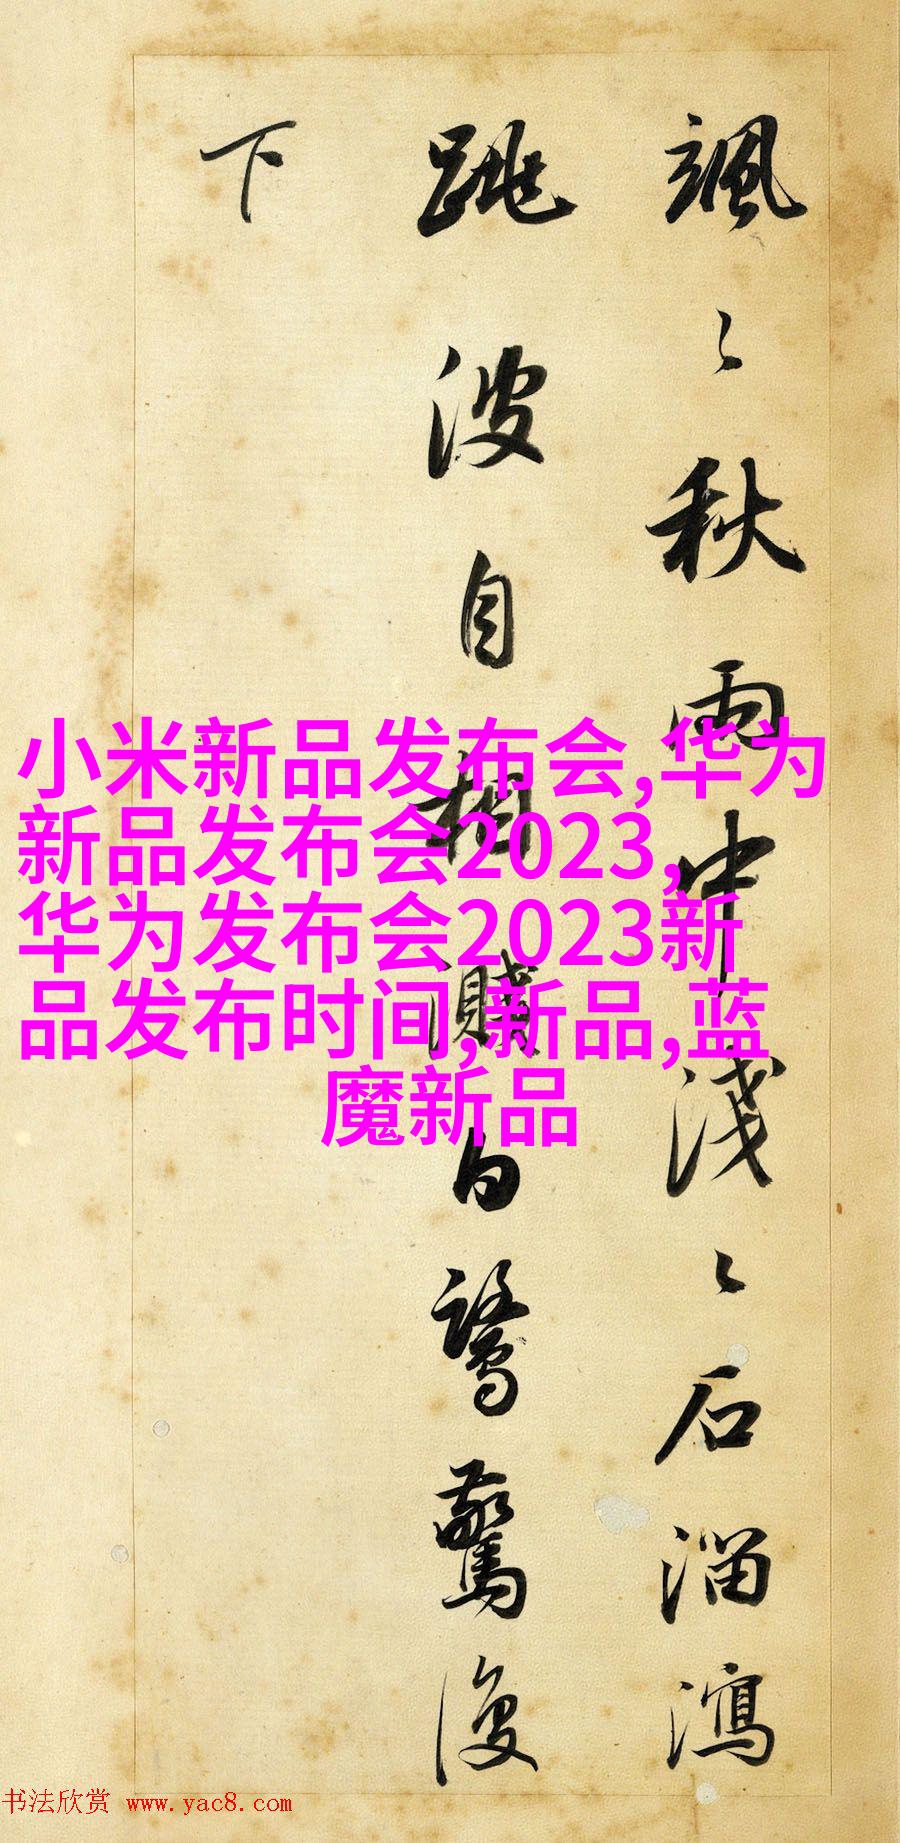 颯〻秋雨中淺〻石溜瀉
跳波自相濺白鷺驚復
下
小米新品发布会,华为
新品发布会2023,
华为发布会2023新
品发布时间,新品,蓝
魔新品
书法欣赏 www.yac8.com